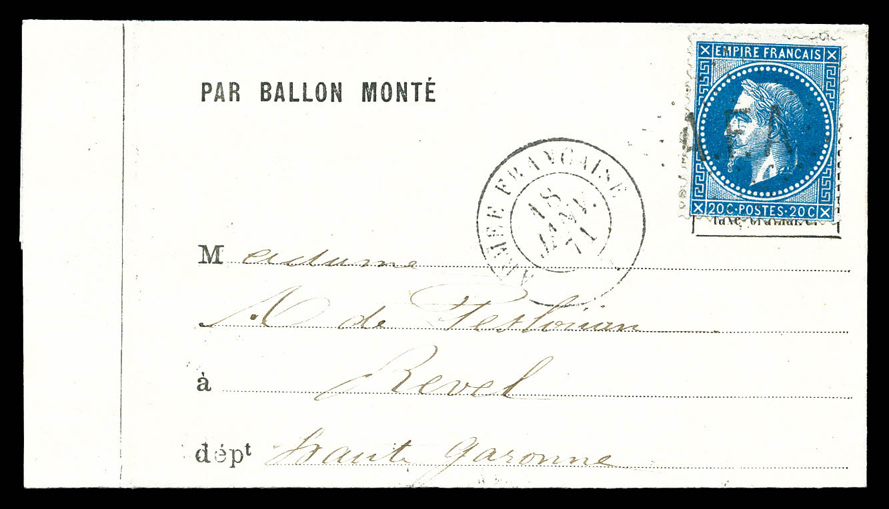 EMPIRE FRANÇAIS
PAR BALLON MONTÉ
A.F.A.
ARMEE FRANÇAISE
18
JANV.
71
20 C · POSTES · 20 C
Madame
de
à Revel
dépt Haute Garonne